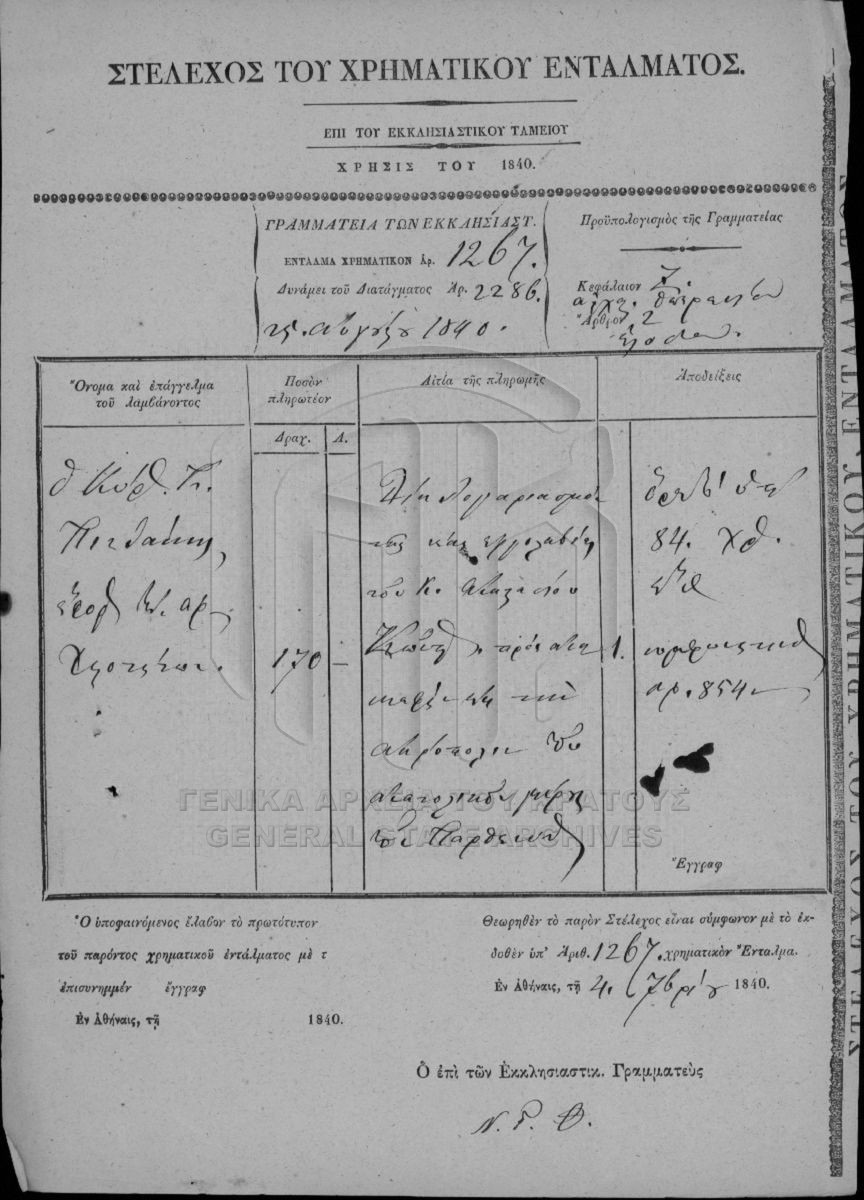 ΣΤΕΛΕΧΟΣ ΤΟΥ ΧΡΗΜΑΤΙΚΟΥ ΕΝΤΑΛΜΑΤΟΣ.
ΕΠΙ ΤΟΥ ΕΚΚΛΗΣΙΑΣΤΙΚΟΥ ΤΑΜΕΙΟΥ
ΧΡΗΣΙΣ ΤΟΥ 1840.
ΓΡΑΜΜΑΤΕΙΑ ΤΩΝ ΕΚΚΛΗΣΙΑΣΤ.
ΕΝΤΑΛΜΑ ΧΡΗΜΑΤΙΚΟΝ Ἀρ. 1267.
Δυνάμει τοῦ Διατάγματος Ἀρ. 2286.
25. Αὐγούστου 1840.
Προϋπολογισμὸς τῆς Γραμματείας
Κεφάλαιον 7.
Ἄρθρον 2
Ὄνομα καὶ ἐπάγγελμα
τοῦ λαμβάνοντος
Ποσὸν
πληρωτέον
Αἰτία τῆς πληρωμῆς
Ἀποδείξεις
Δραχ. Λ.
ὁ Κύρ. Κ.
Πιττάκης
ἔφορ. τῶν ἀρ
χαιοτήτων.
170 —
λογαριασμὸν
τῆς ἐργολαβίας
τοῦ Κ.
πρὸς ἀνα
τὴν
ἀκρόπολιν τοῦ
ἀνατολικοῦ μέρους
τοῦ Παρθενῶ
84.
1.
ἀρ. 854
Ἔγγραφ
ΓΕΝΙΚΑ ΑΡΧΕΙΑ ΤΟΥ ΚΡΑΤΟΥΣ
GENERAL STATE ARCHIVES
Ὁ ὑποφαινόμενος ἔλαβον τὸ πρωτότυπον
τοῦ παρόντος χρηματικοῦ ἐντάλματος μὲ τ
ἐπισυνημμέν ἔγγραφ
Ἐν Ἀθήναις, τῇ 1840.
Θεωρηθὲν τὸ παρὸν Στέλεχος εἶναι σύμφωνον μὲ τὸ ἐκ-
δοθὲν ὑπ' Ἀριθ. 1267. χρηματικὸν Ἔνταλμα.
Ἐν Ἀθήναις, τῇ 4. 7βρίου 1840.
Ὁ ἐπὶ τῶν Ἐκκλησιαστικ. Γραμματεὺς
Ν. Γ. Θ.
ΣΤΕΛΕΧΟΣ ΤΟΥ ΧΡΗΜΑΤΙΚΟΥ ΕΝΤΑΛΜΑΤΟΣ